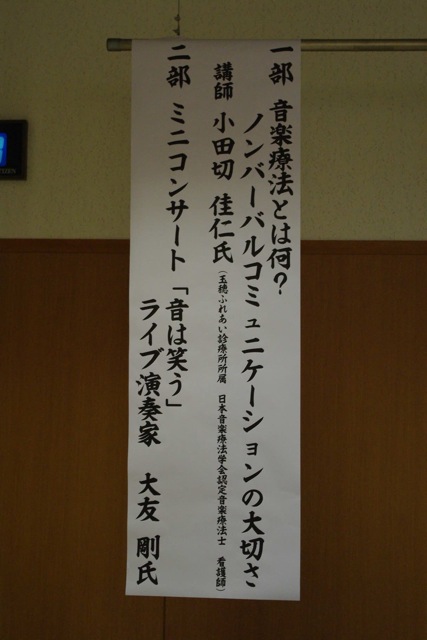 一部　音楽療法とは何？
ノンバーバルコミュニケーションの大切さ
講師　小田切　佳仁氏（玉穂ふれあい診療所所属　日本音楽療法学会認定音楽療法士　看護師）
二部　ミニコンサート「音は笑う」
ライブ演奏家　大友　剛氏